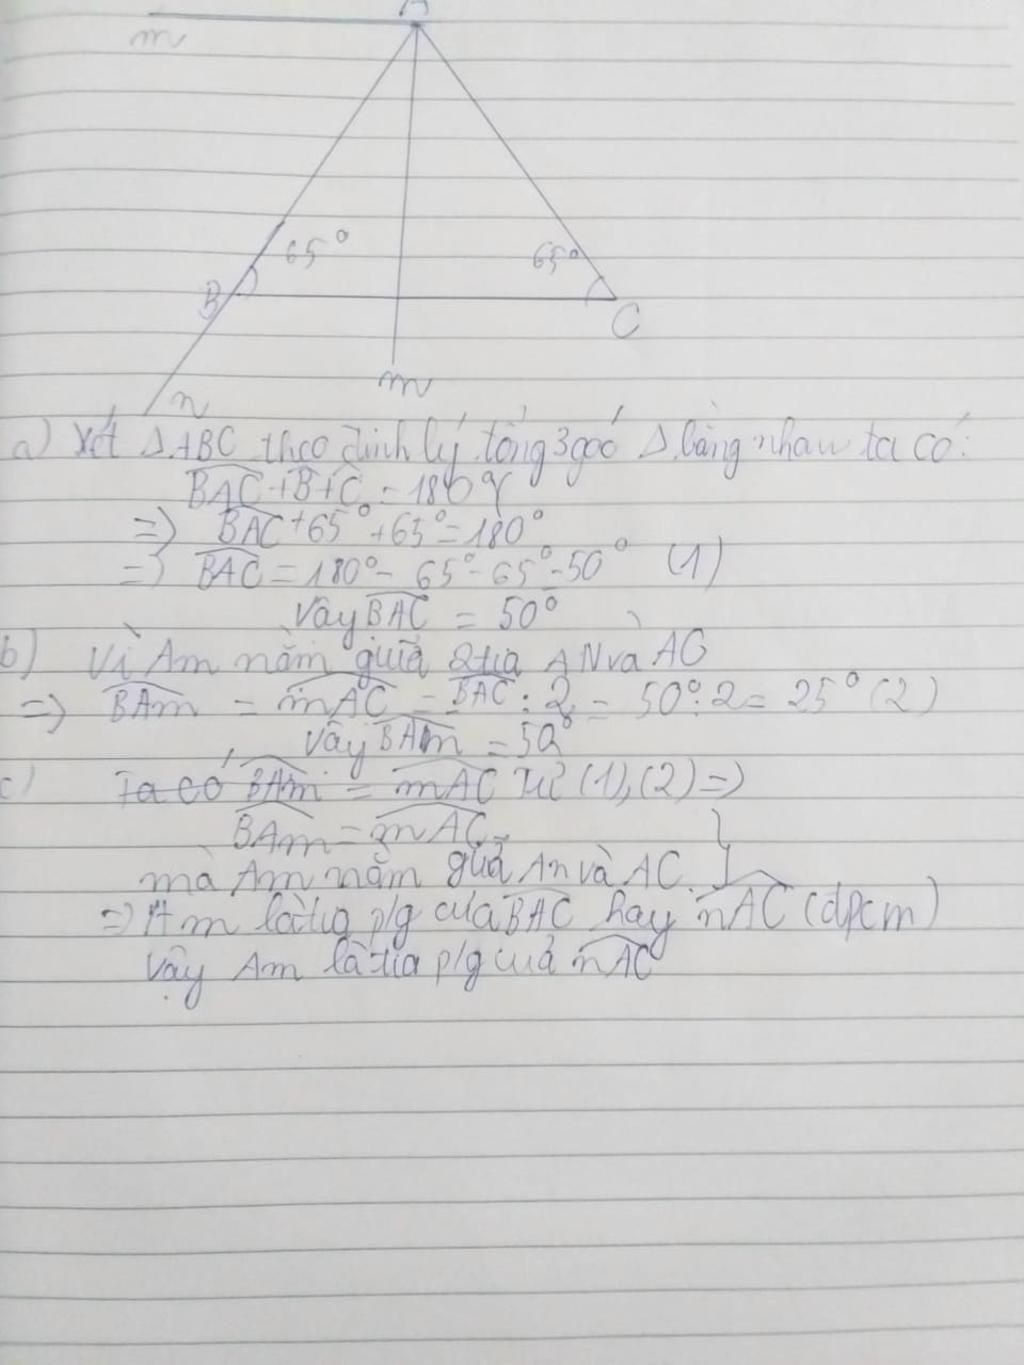 A
m
65°
65°
B
C
m
n
a) Xét ΔABC theo định lý tổng 3 góc Δ bằng nhau ta có:
BAC + B + C = 180°
=> BAC + 65° + 65° = 180°
=> BAC = 180° - 65° - 65° = 50° (1)
Vậy BAC = 50°
b) Vì Am nằm giữa 2 tia AN và AC
=> BAm = mAC = BAC : 2 = 50° : 2 = 25° (2)
Vậy BAm = 50°
c) Ta có BAm = mAC từ (1), (2) =>
BAm = mAC
mà Am nằm giữa An và AC }
=> Am là tia p/g của BAC hay nAC (đpcm)
Vậy Am là tia p/g của nAC